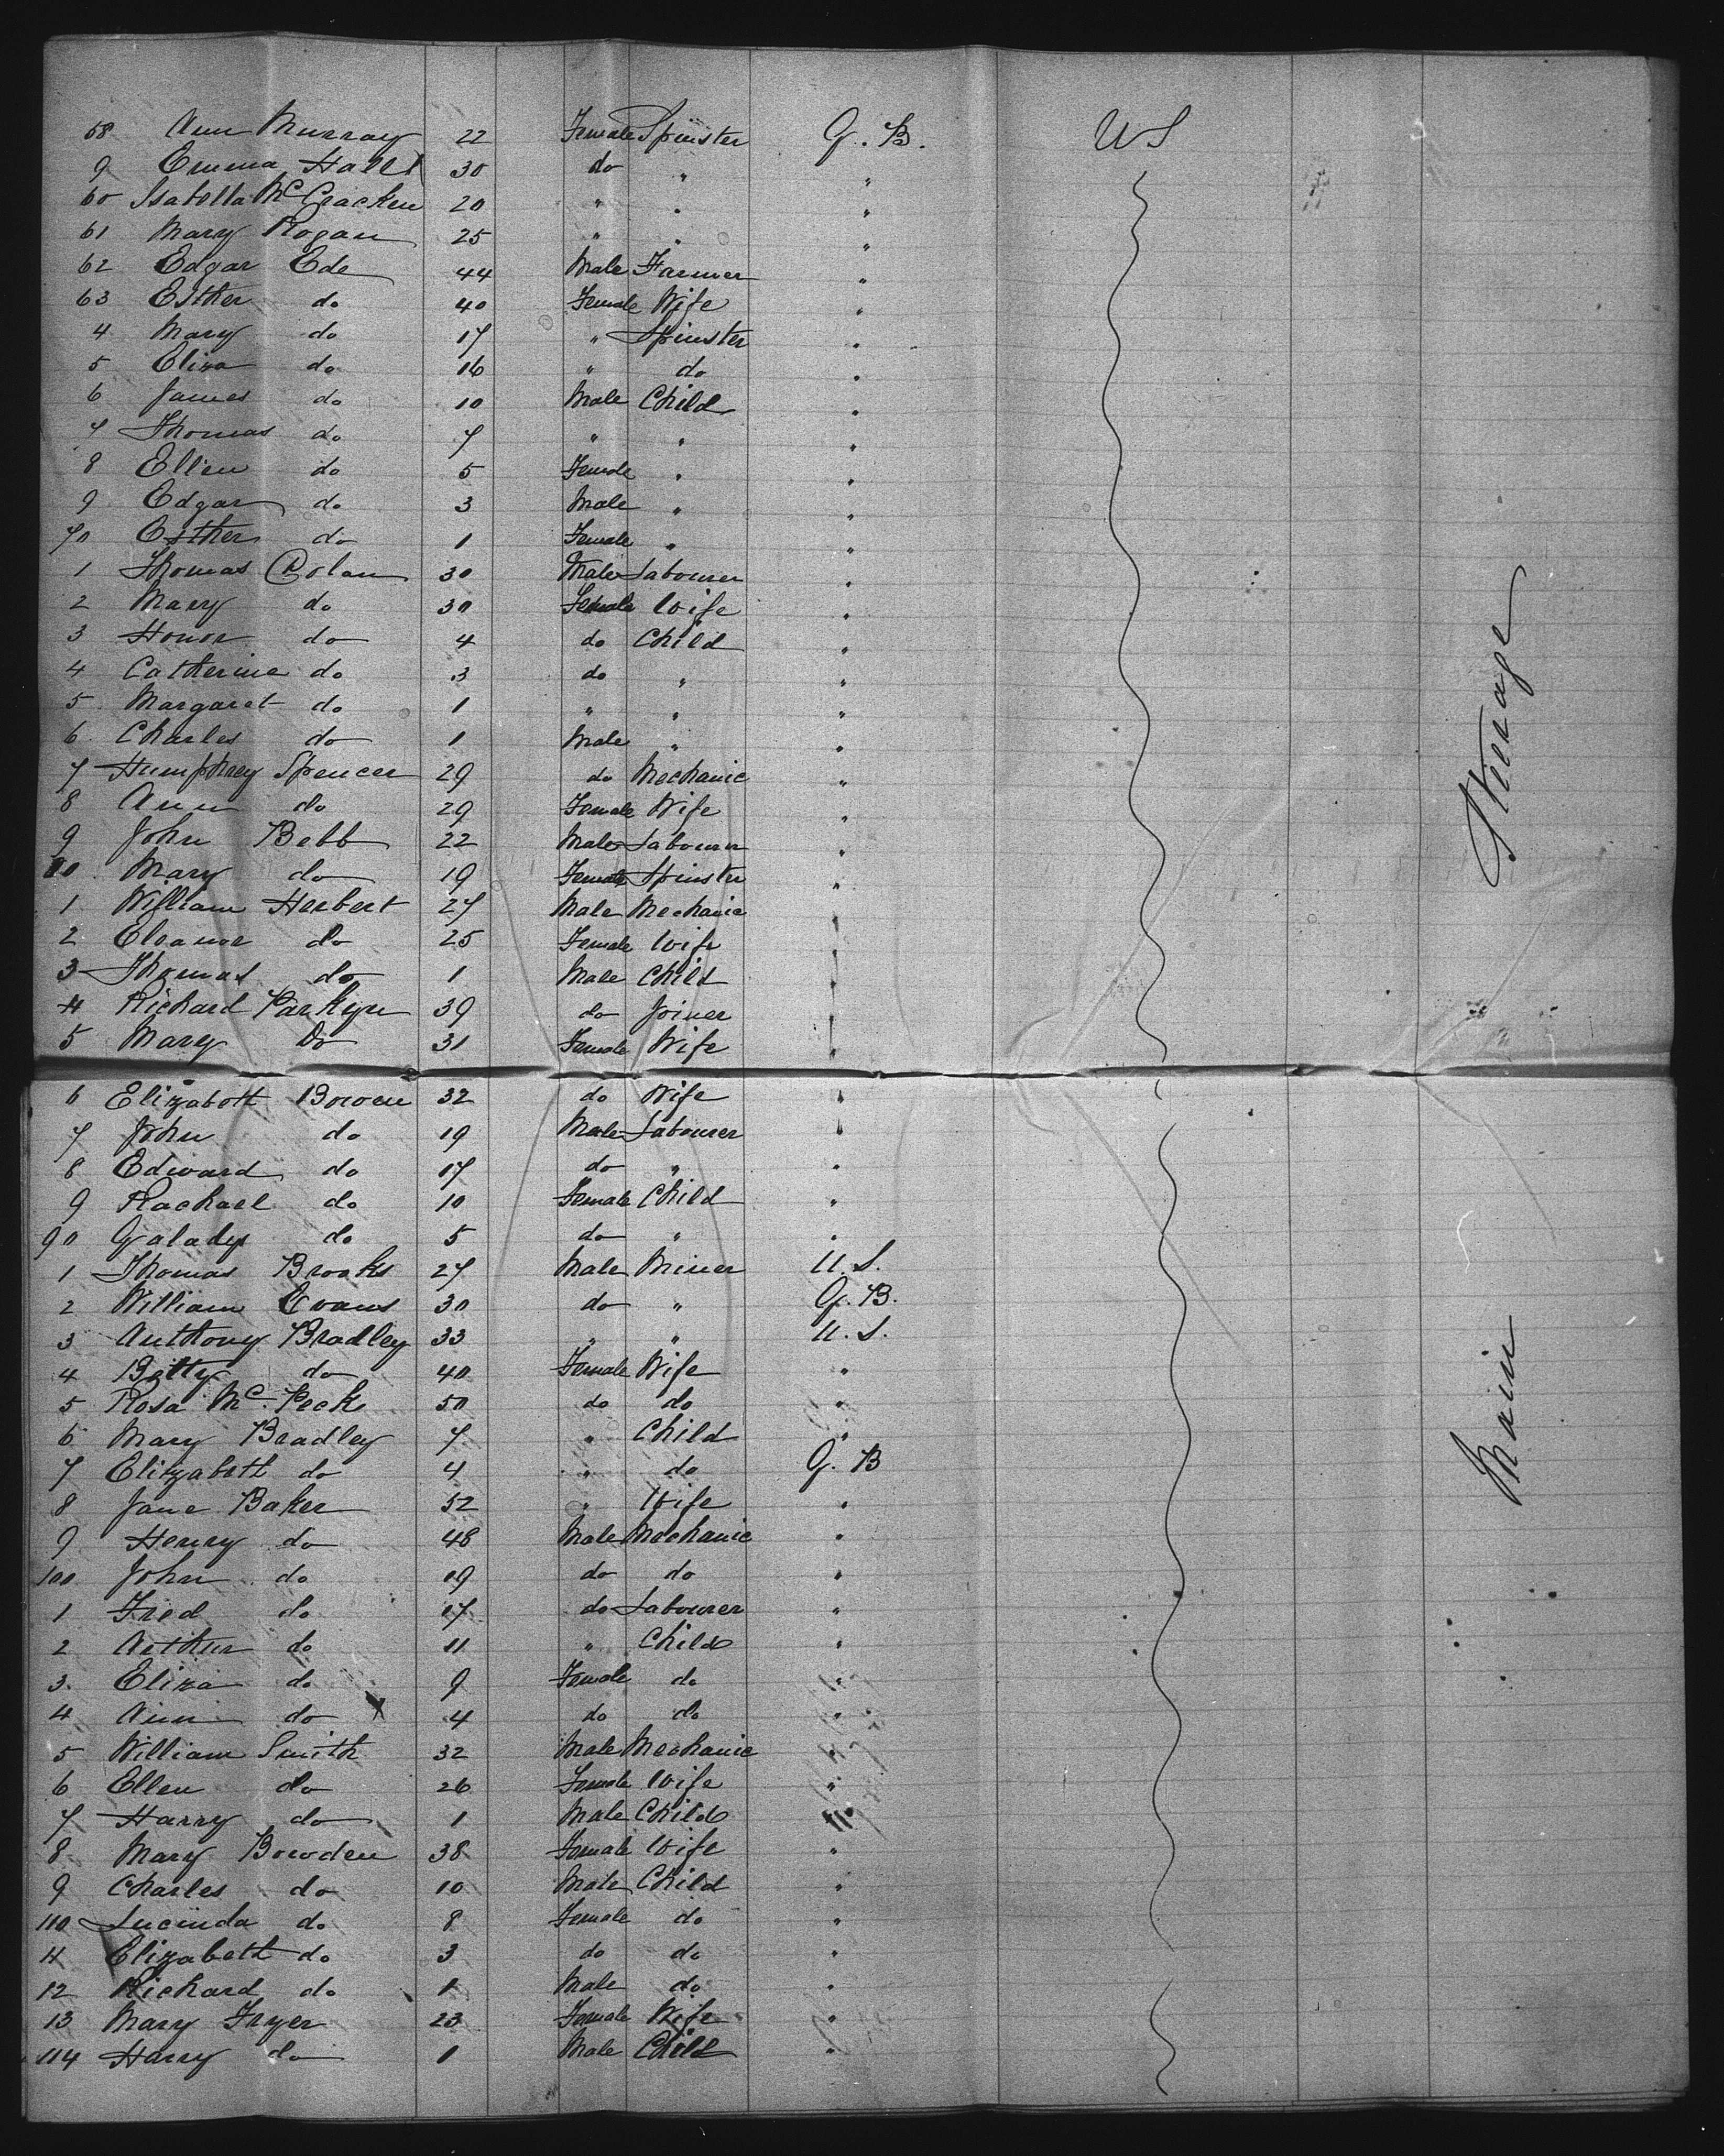 58 Ann Murray 22 Female Spinster G. B. U S
9 Emma Hall 30 do " "
60 Isabella McCracken 20 " " "
61 Mary Rogan 25 " " "
62 Edgar Ede 44 Male Farmer "
63 Esther do 40 Female Wife "
4 Mary do 17 " Spinster "
5 Eliza do 16 " do "
6 James do 10 Male Child "
7 Thomas do 7 " " "
8 Ellen do 5 Female " "
9 Edgar do 3 Male " "
70 Esther do 1 Female " "
1 Thomas Colan 30 Male Labourer "
2 Mary do 30 Female Wife "
3 Honor do 4 do Child "
4 Catherine do 3 do " "
5 Margaret do 1 " " "
6 Charles do 1 Male " "
7 Humphrey Spencer 29 do Mechanic "
8 Ann do 29 Female Wife "
9 John Bebb 22 Male Labourer "
80 Mary do 19 Female Spinster "
1 William Herbert 27 Male Mechanic "
2 Eleanor do 25 Female Wife "
3 Thomas do 1 Male Child "
4 Richard Parkyn 39 do Joiner "
5 Mary Do 31 Female Wife "
Steerage
6 Elizabeth Bowen 32 do Wife "
7 John do 19 Male Labourer "
8 Edward do 17 do " "
9 Rachael do 10 Female Child "
90 Galadys do 5 do " "
1 Thomas Brooks 27 Male Miner U. S.
2 William Evans 30 do " G. B.
3 Anthony Bradley 33 " " U. S.
4 Betty do 40 Female Wife "
5 Rosa Mc. Peck 50 do do "
6 Mary Bradley 7 " Child "
7 Elizabeth do 4 " do G. B
8 Jane Baker 52 " Wife "
9 Henry do 48 Male Mechanic "
100 John do 19 do do "
1 Fred do 17 do Labourer "
2 Arthur do 11 " Child "
3 Eliza do 9 Female do "
4 Ann do 4 do do "
5 William Smith 32 Male Mechanic "
6 Ellen do 26 Female Wife "
7 Harry do 1 Male Child "
8 Mary Bowden 38 Female Wife "
9 Charles do 10 Male Child "
110 Lucinda do 8 Female do "
11 Elizabeth do 3 do do "
12 Richard do 1 Male do "
13 Mary Fryer 23 Female Wife "
114 Harry do 1 Male Child "
Main